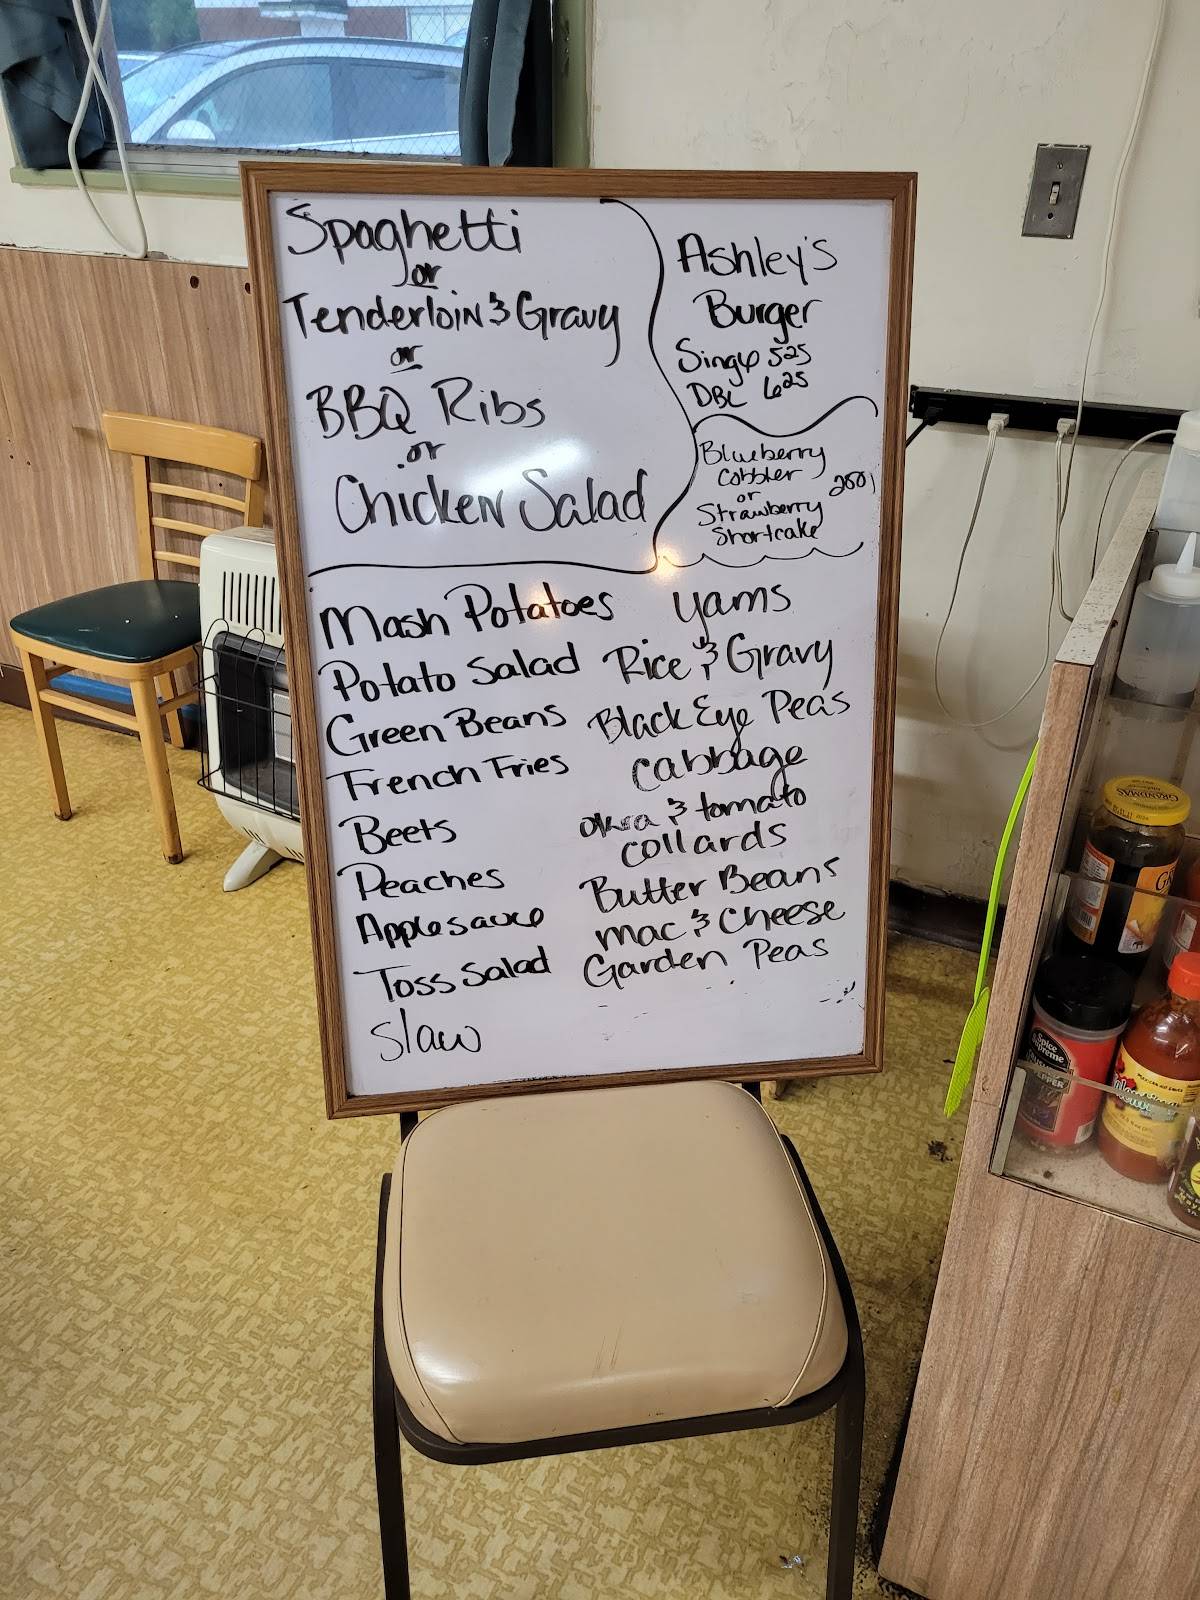 Spaghetti
or
Tenderloin & Gravy
or
BBQ Ribs
or
Chicken Salad
Ashley's
Burger
Single 525
DBL 625
Blueberry
Cobbler
or
Strawberry
Shortcake
200
Mash Potatoes
Potato Salad
Green Beans
French Fries
Beets
Peaches
Applesauce
Toss Salad
Slaw
Yams
Rice & Gravy
Black Eye Peas
Cabbage
Okra & tomato
Collards
Butter Beans
Mac & Cheese
Garden Peas
GRANDMA'S
Spice
Supreme
PEPPER